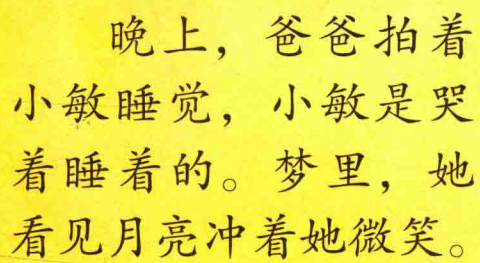 晚上，爸爸拍着
小敏睡觉，小敏是哭
着睡着的。梦里，她
看见月亮冲着她微笑。